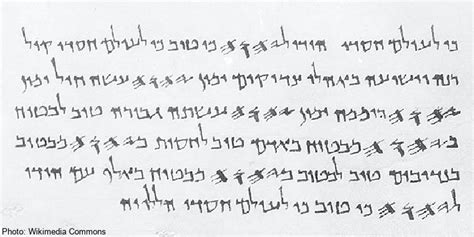 כי לעולם חסדו הודו ל𐤉𐤄𐤅𐤄 כי טוב כי לעולם חסדו קול
רנה וישועה באהלי צדיקים ימין 𐤉𐤄𐤅𐤄 עשה חיל ימין
𐤉𐤄𐤅𐤄 רוממה ימין 𐤉𐤄𐤅𐤄 עשתה גבורה טוב לבטוח
ב𐤉𐤄𐤅𐤄 מבטוח באדם טוב לחסות ב𐤉𐤄𐤅𐤄 מבטוח
בנדיבים טוב לבטוח ב𐤉𐤄𐤅𐤄 מבטוח באלף עם הודו
ל𐤉𐤄𐤅𐤄 כי טוב כי לעולם חסדו הללויה
Photo: Wikimedia Commons